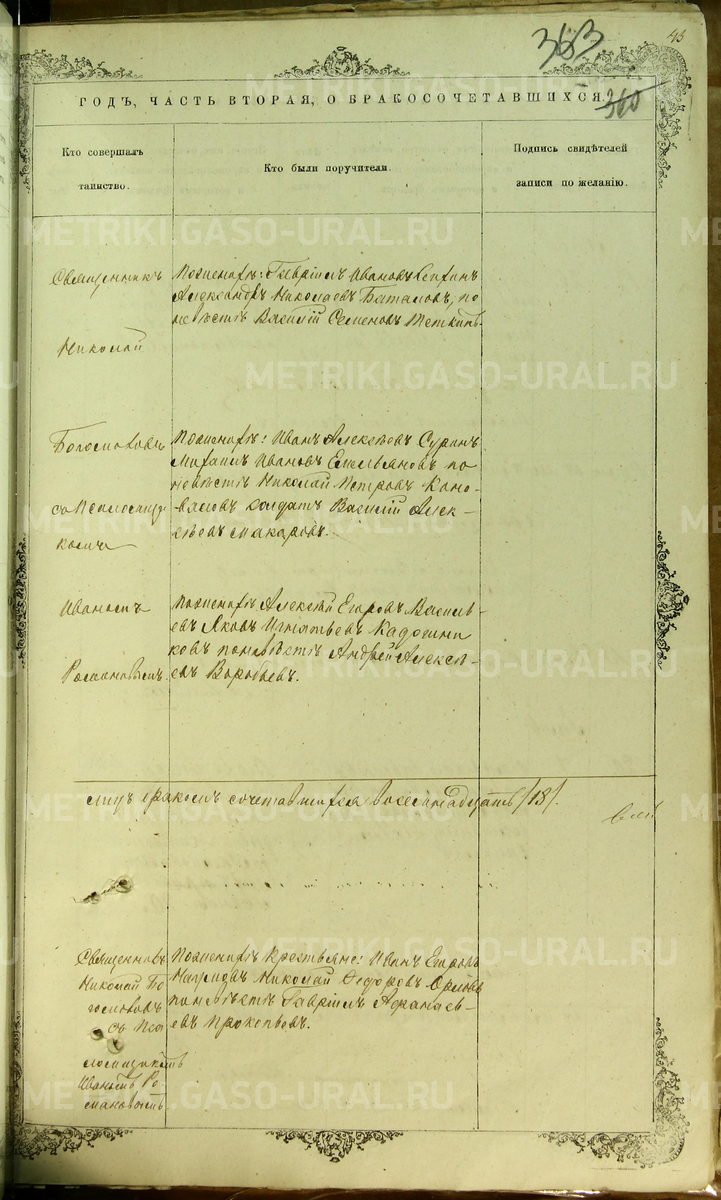 363
43
ГОДЪ, ЧАСТЬ ВТОРАЯ, О БРАКОСОЧЕТАВШИХСЯ.
360
Кто совершалъ
таинство.
Кто были поручители.
Подпись свидѣтелей
записи по желанію.
Священникъ
Николай
По женихѣ: Гавріилъ Ивановъ
Александръ Николаевъ Баталовъ, по
невѣстѣ Василій Семеновъ Теткинъ
Боголюбовъ
По женихѣ: Иванъ Алексѣевъ
Михаилъ Ивановъ Емельяновъ по
невѣстѣ Николай Петровъ Коно-
валовъ солдатъ Василій Алек-
сѣевъ Макаровъ.
Иваномъ
Романовымъ.
По женихѣ Алексѣй Егоровъ Василь-
евъ Яковъ Игнатьевъ Кадошни
ковъ по невѣстѣ Андрей Алексѣ-
евъ Воробьевъ.
лицъ бракомъ сочетавшихся восемнадцать /18/.
Священникъ
Николай Бо
голюбовъ
съ Пса
ломщикомъ
Иваномъ Ро
мановымъ
По женихѣ крестьяне: Иванъ Егоровъ
Николай Ѳедоровъ Орловъ
по невѣстѣ Гавріилъ Аѳанась-
евъ Прокопьевъ.
METRIKI.GASO-URAL.RU